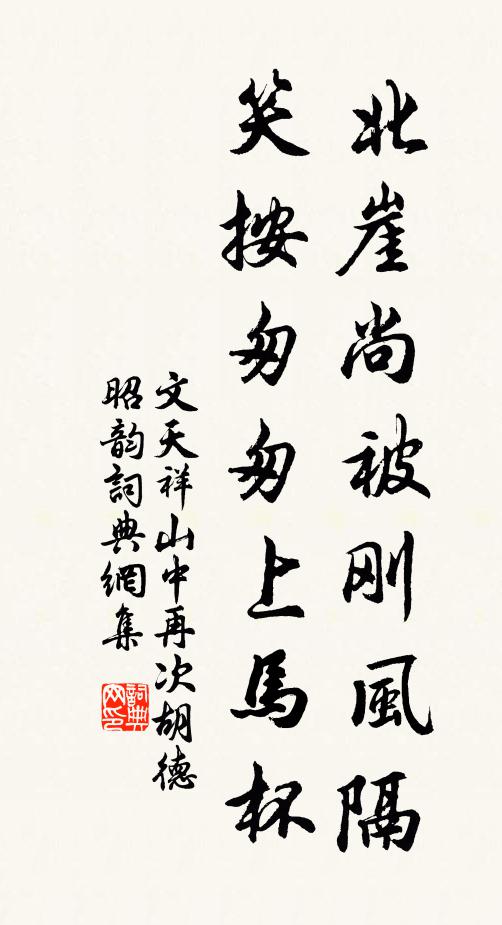 北崖尚被刚風隔
笑按匆匆上馬杯
文天祥山中再次胡德
昭韵詞典網集
詞典网印